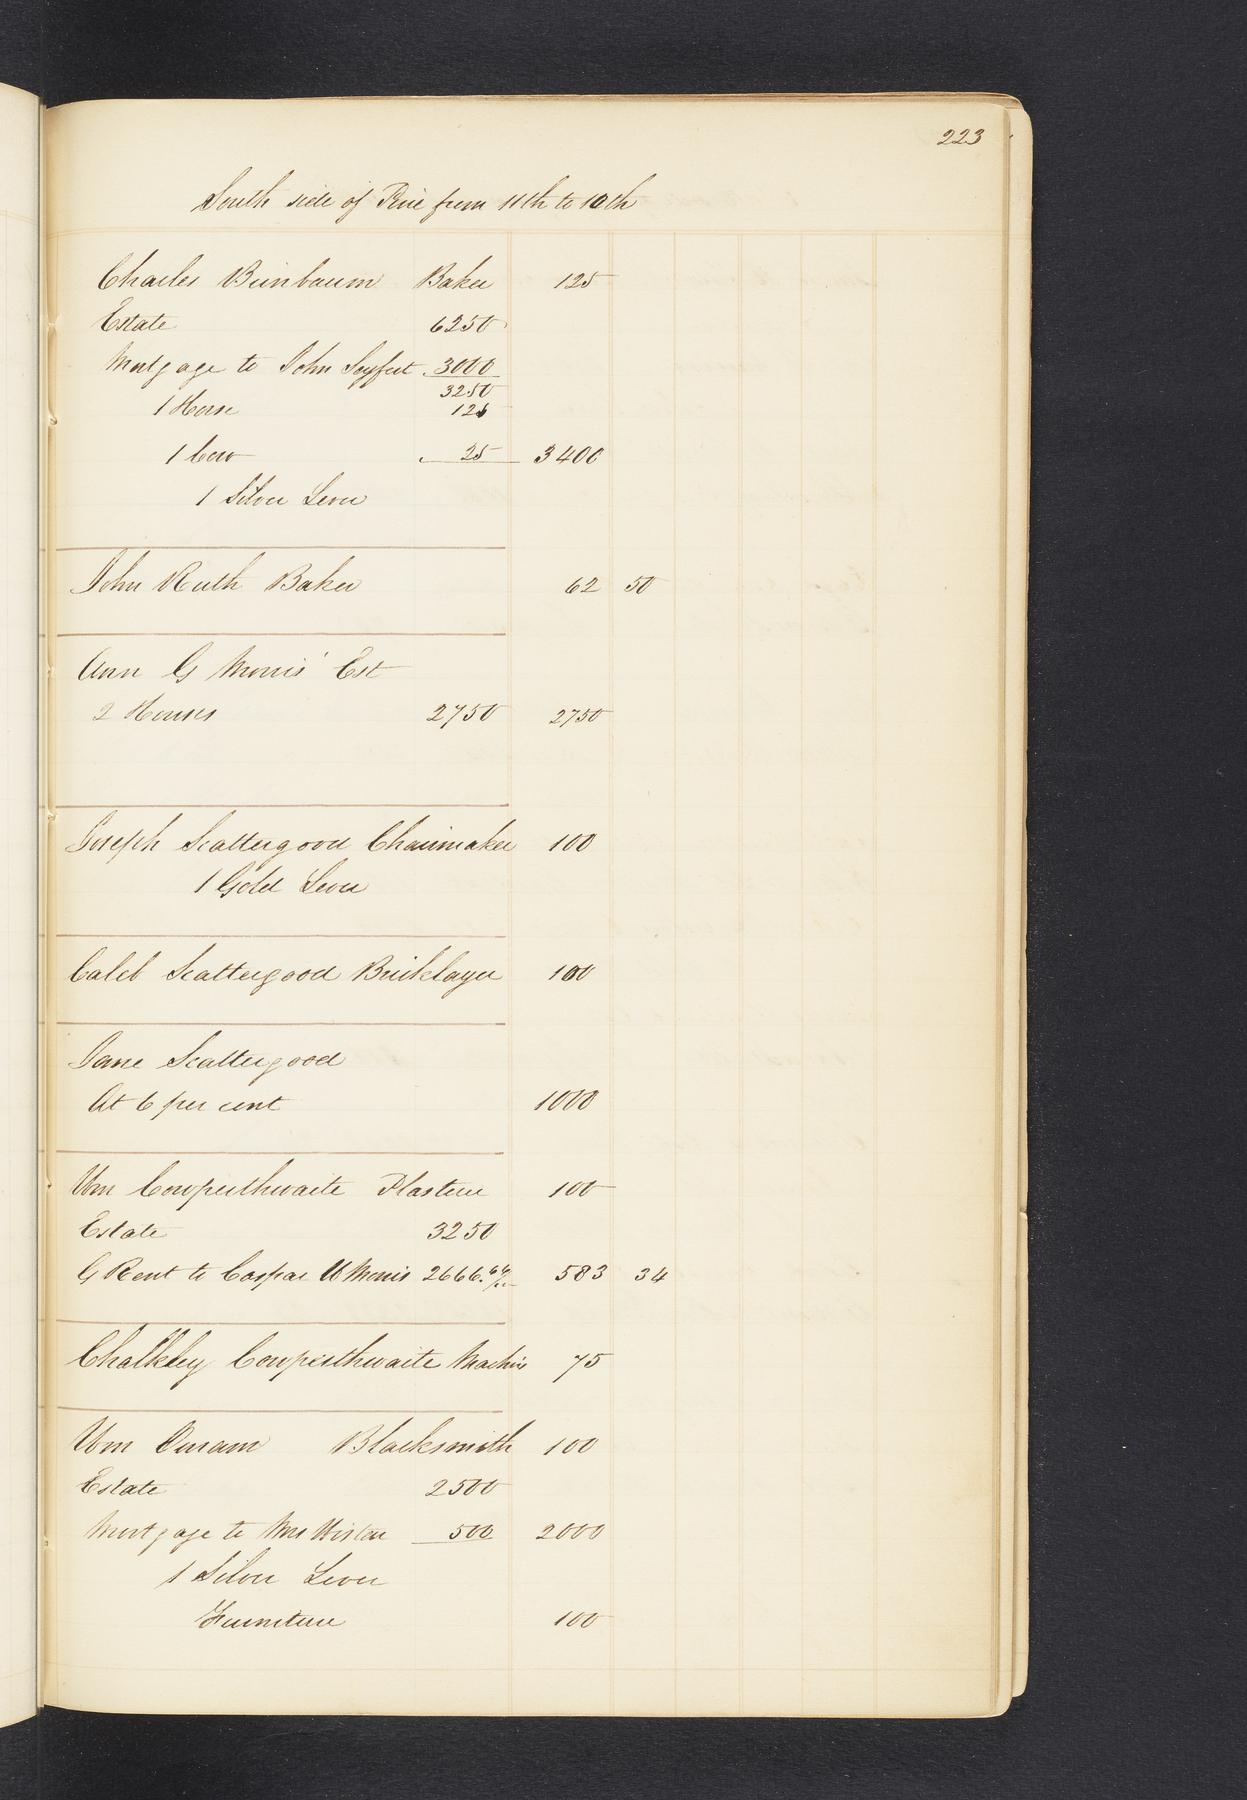 223
South side of Pine from 11th to 10th
Charles Birnbaum Baker 125
Estate 6250
Mortgage to John Seyfert 3000
3250
1 Horse 125
1 Cow 25 3400
1 Silver Lever
John Ruth Baker 62 50
Ann G Morris' Est
2 Houses 2750 2750
Joseph Scattergood Chairmaker 100
1 Gold Lever
Caleb Scattergood Bricklayer 100
Jane Scattergood
At 6 per cent 1000
Wm Cowperthwaite Plasterer 100
Estate 3250
G Rent to Caspar W Morris 2666.66/100 583 34
Chalkley Cowperthwaite Machin 75
Wm Duram Blacksmith 100
Estate 2500
Mortgage to Wm Wistar 500 2000
1 Silver Lever
Furniture 100